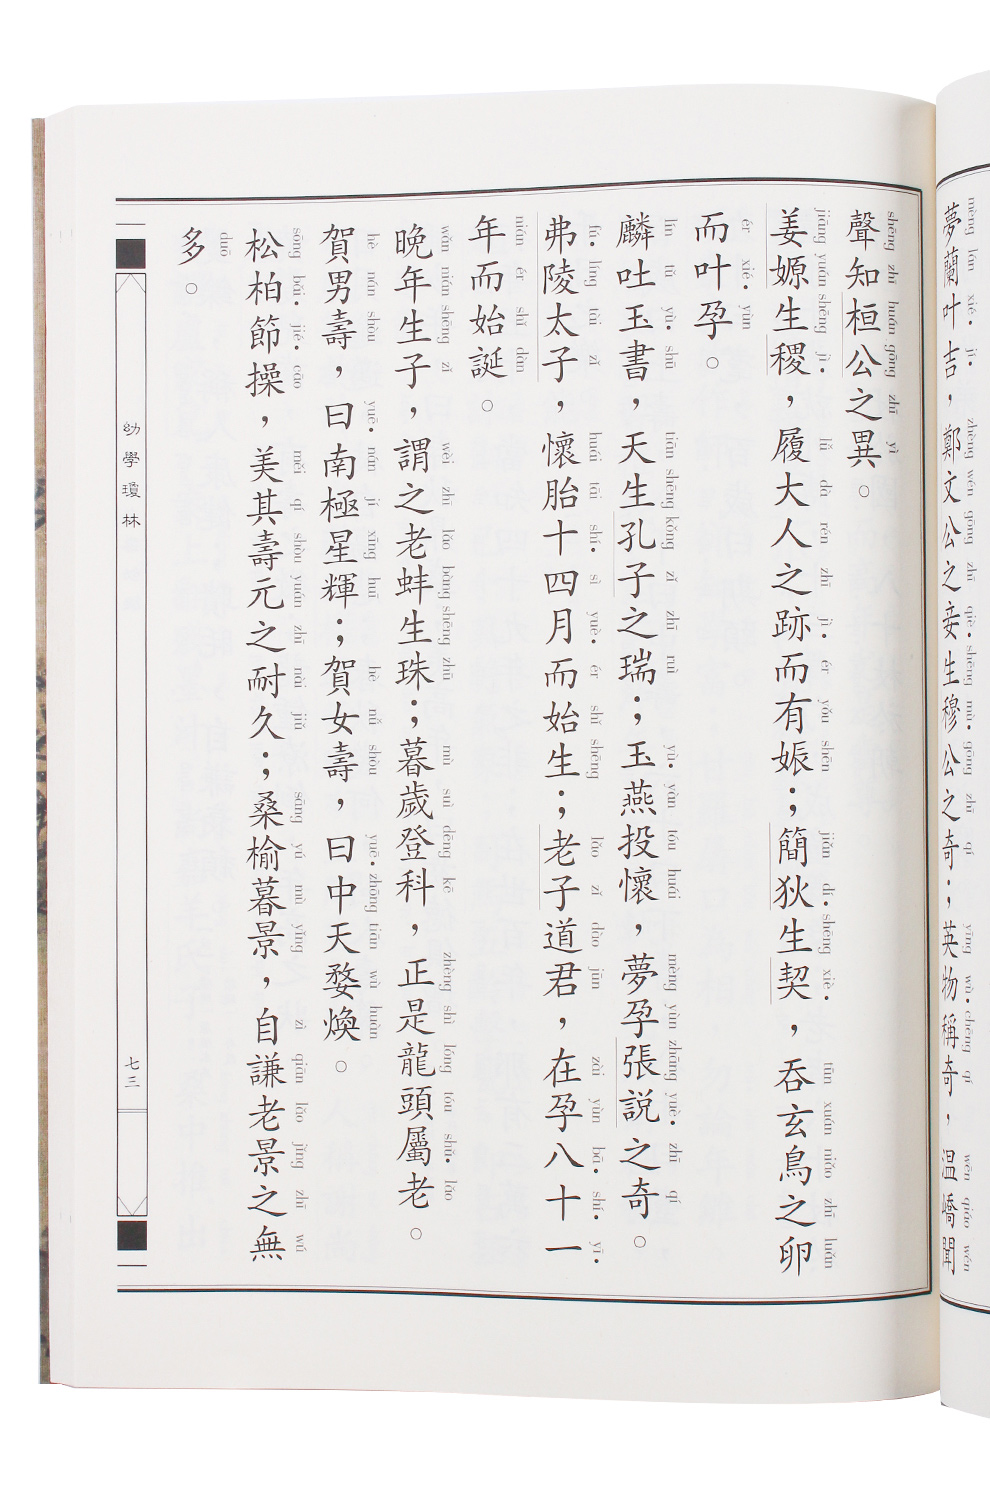 夢蘭叶吉，鄭文公之妾生穆公之奇；英物稱奇，溫嶠聞
聲知桓公之異。
姜嫄生稷，履大人之跡而有娠；簡狄生契，吞玄鳥之卵
而叶孕。
麟吐玉書，天生孔子之瑞；玉燕投懷，夢孕張説之奇。
弗陵太子，懷胎十四月而始生；老子道君，在孕八十一
年而始誕。
晚年生子，謂之老蚌生珠；暮歲登科，正是龍頭屬老。
賀男壽，曰南極星輝；賀女壽，曰中天婺煥。
松柏節操，美其壽元之耐久；桑榆暮景，自謙老景之無
多。
幼學瓊林
七三